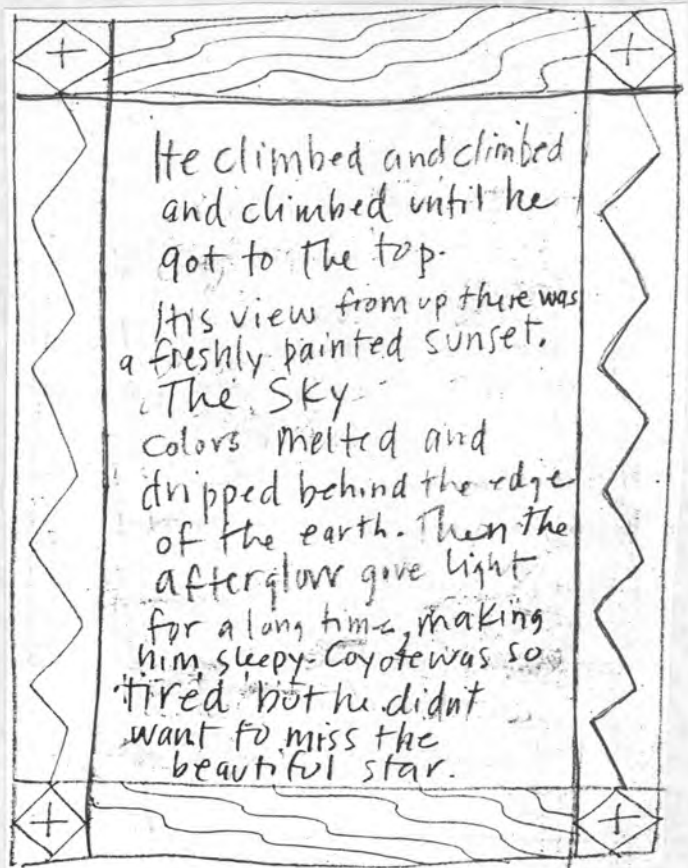 He climbed and climbed
and climbed until he
got to the top.
His view from up there was
a freshly painted sunset.
The Sky
colors melted and
dripped behind the edge
of the earth. Then the
afterglow give light
for a long time, making
him sleepy. Coyote was so
tired but he didnt
want to miss the
beautiful star.